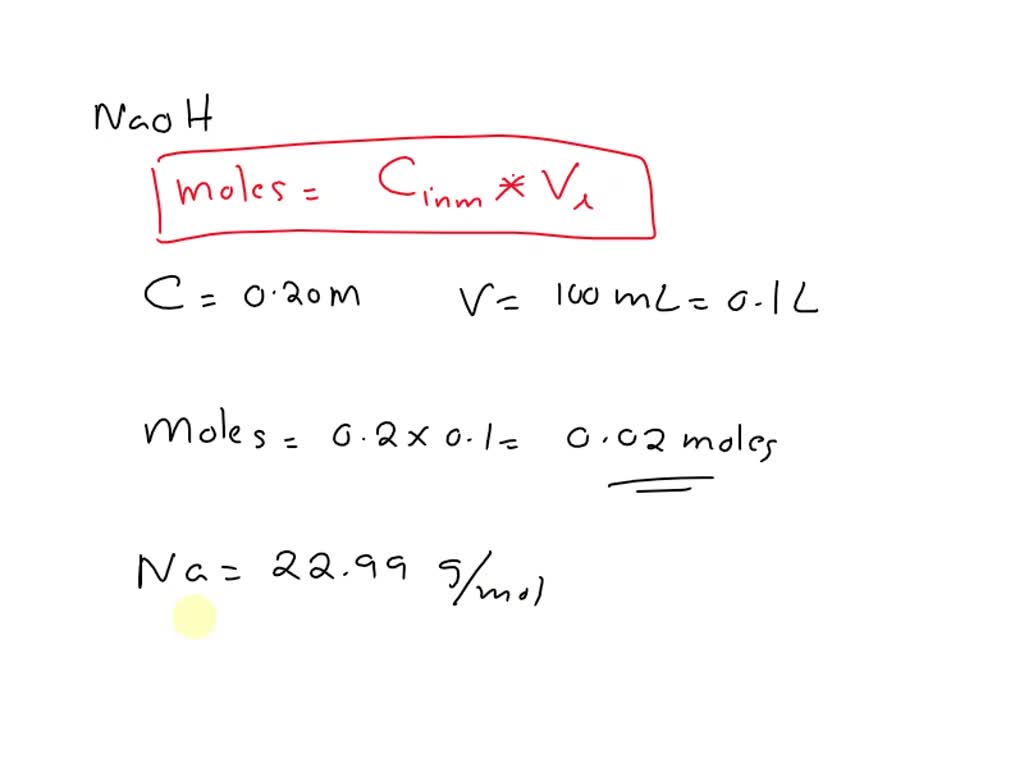 NaoH
moles = Cinm * VL
C = 0.20M V = 100 mL = 0.1L
moles = 0.2 x 0.1 = 0.02 moles
Na = 22.99 g/mol